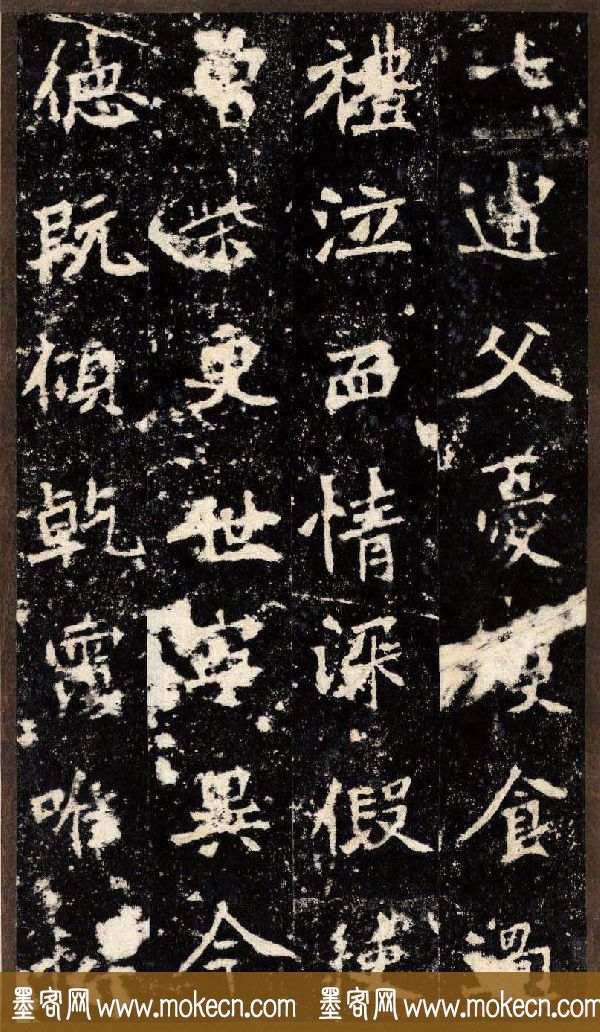 七遭父憂寑食過
禮泣血情深假使
曾柴更世寧異今
德既傾乾覆唯
墨客网 www.mokecn.com 墨客网 www.mokecn.com